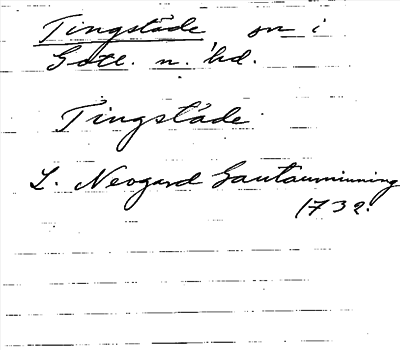 Tingstäde sn i
Gotl. n. hd.
Tingstäde
L. Neogard Gautauminning
1732.